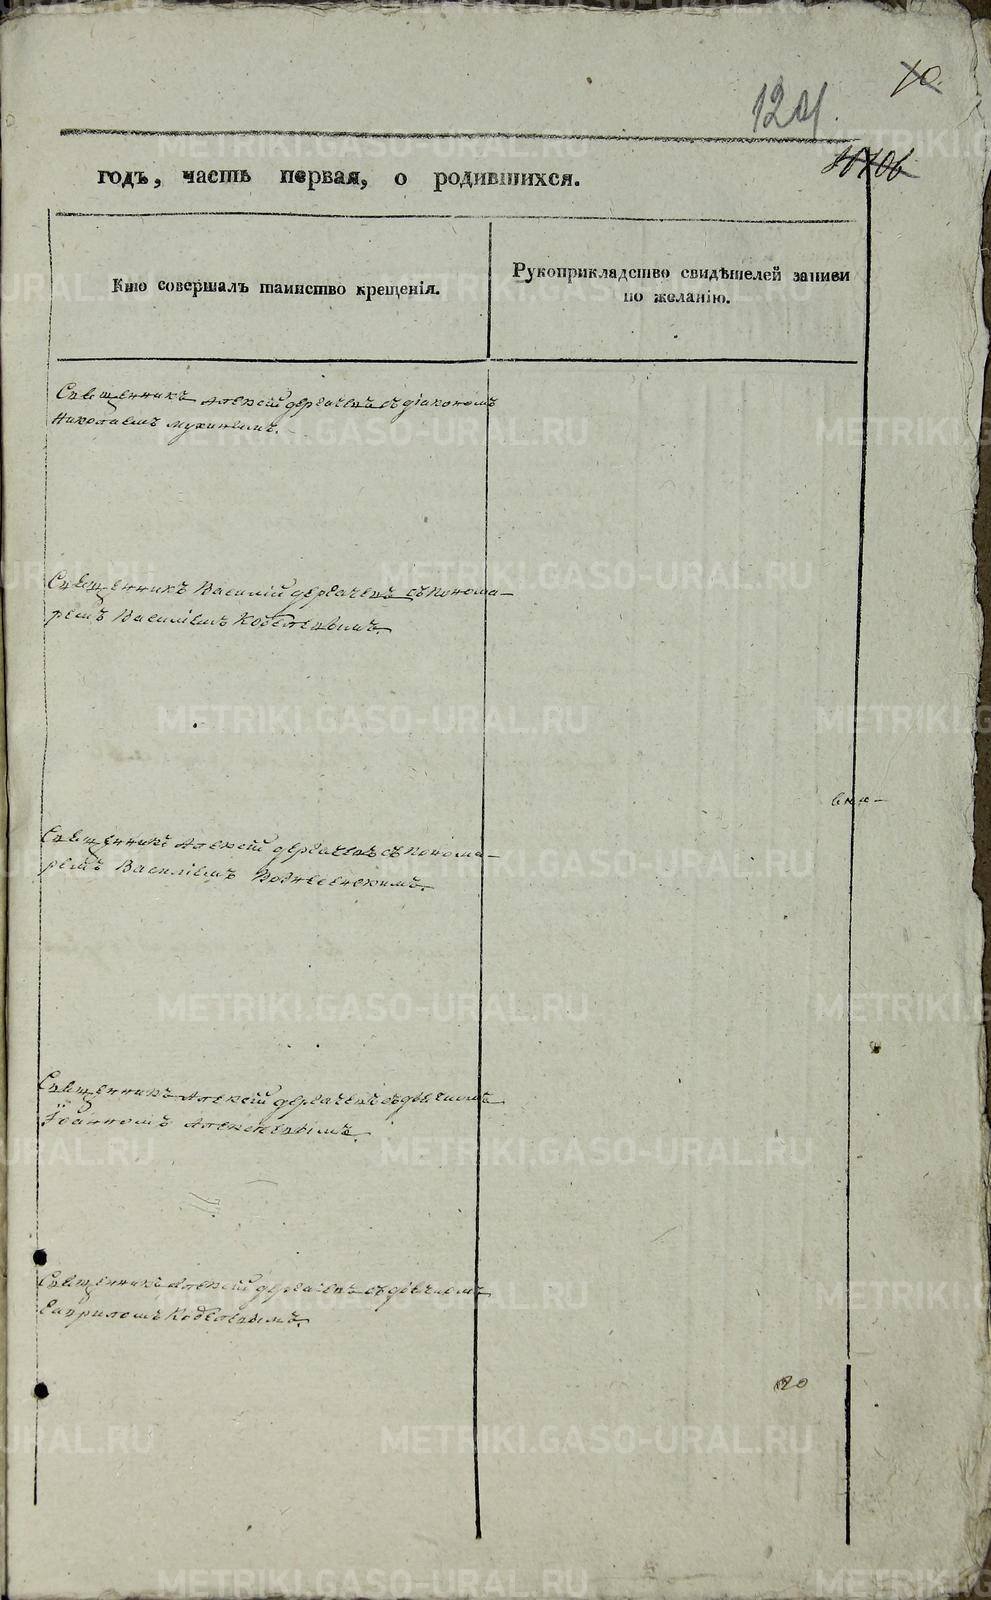 121.
10.
годъ, часть первая, о родившихся.
Кто совершалъ таинство крещенія.
Рукоприкладство свидѣтелей записи
по желанію.
Священникъ Алексій Дергачевъ съ діакономъ
Николаемъ Мухинымъ.
Священникъ Василій Дергачевъ съ понома-
ремъ Василіемъ
Священникъ Алексій Дергачевъ съ понома-
ремъ Василіемъ Вознесенскимъ.
Священникъ Алексій Дергачевъ съ дьячкомъ
Іоанномъ Алексѣевымъ.
Священникъ Алексій Дергачевъ съ дьячкомъ
Гавриломъ
20
METRIKI.GASO-URAL.RU